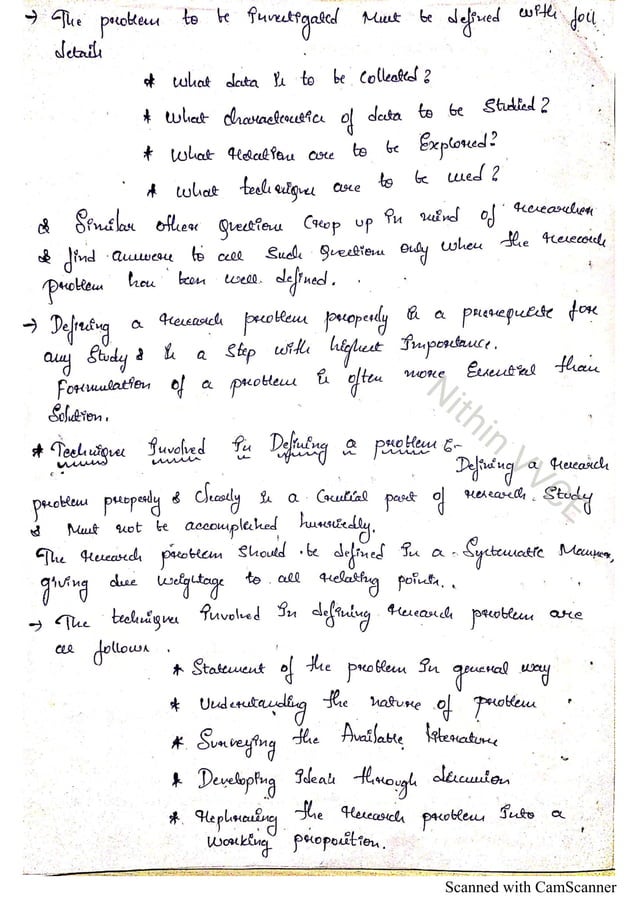 → The problem to be Investigated Must be defined with full
details
* What data is to be Collected?
* What characteristics of data to be Studied?
* What relation are to be Explored?
* What techniques are to be used?
& Similar other questions Crop up in mind of researcher
& find answers to all Such questions only when the research
problem has been well defined.
→ Defining a research problem properly is a prerequisite for
any Study & is a Step with highest Importance.
Formulation of a problem is often more Essential than
Solution.
* Techniques Involved In Defining a problem :-
Defining a research
problem properly & Clearly is a Crucial part of research Study
& Must not be accomplished hurriedly.
The research problem Should be defined In a Systematic Manner,
giving due weightage to all relating points.
→ The techniques Involved In defining research problem are
as follows.
* Statement of the problem In general way
* Understanding the nature of problem
* Surveying the Available literature
* Developing Ideas through discussion
* Rephrasing the research problem Into a
Working proposition.
Nithin VVCE
Scanned with CamScanner